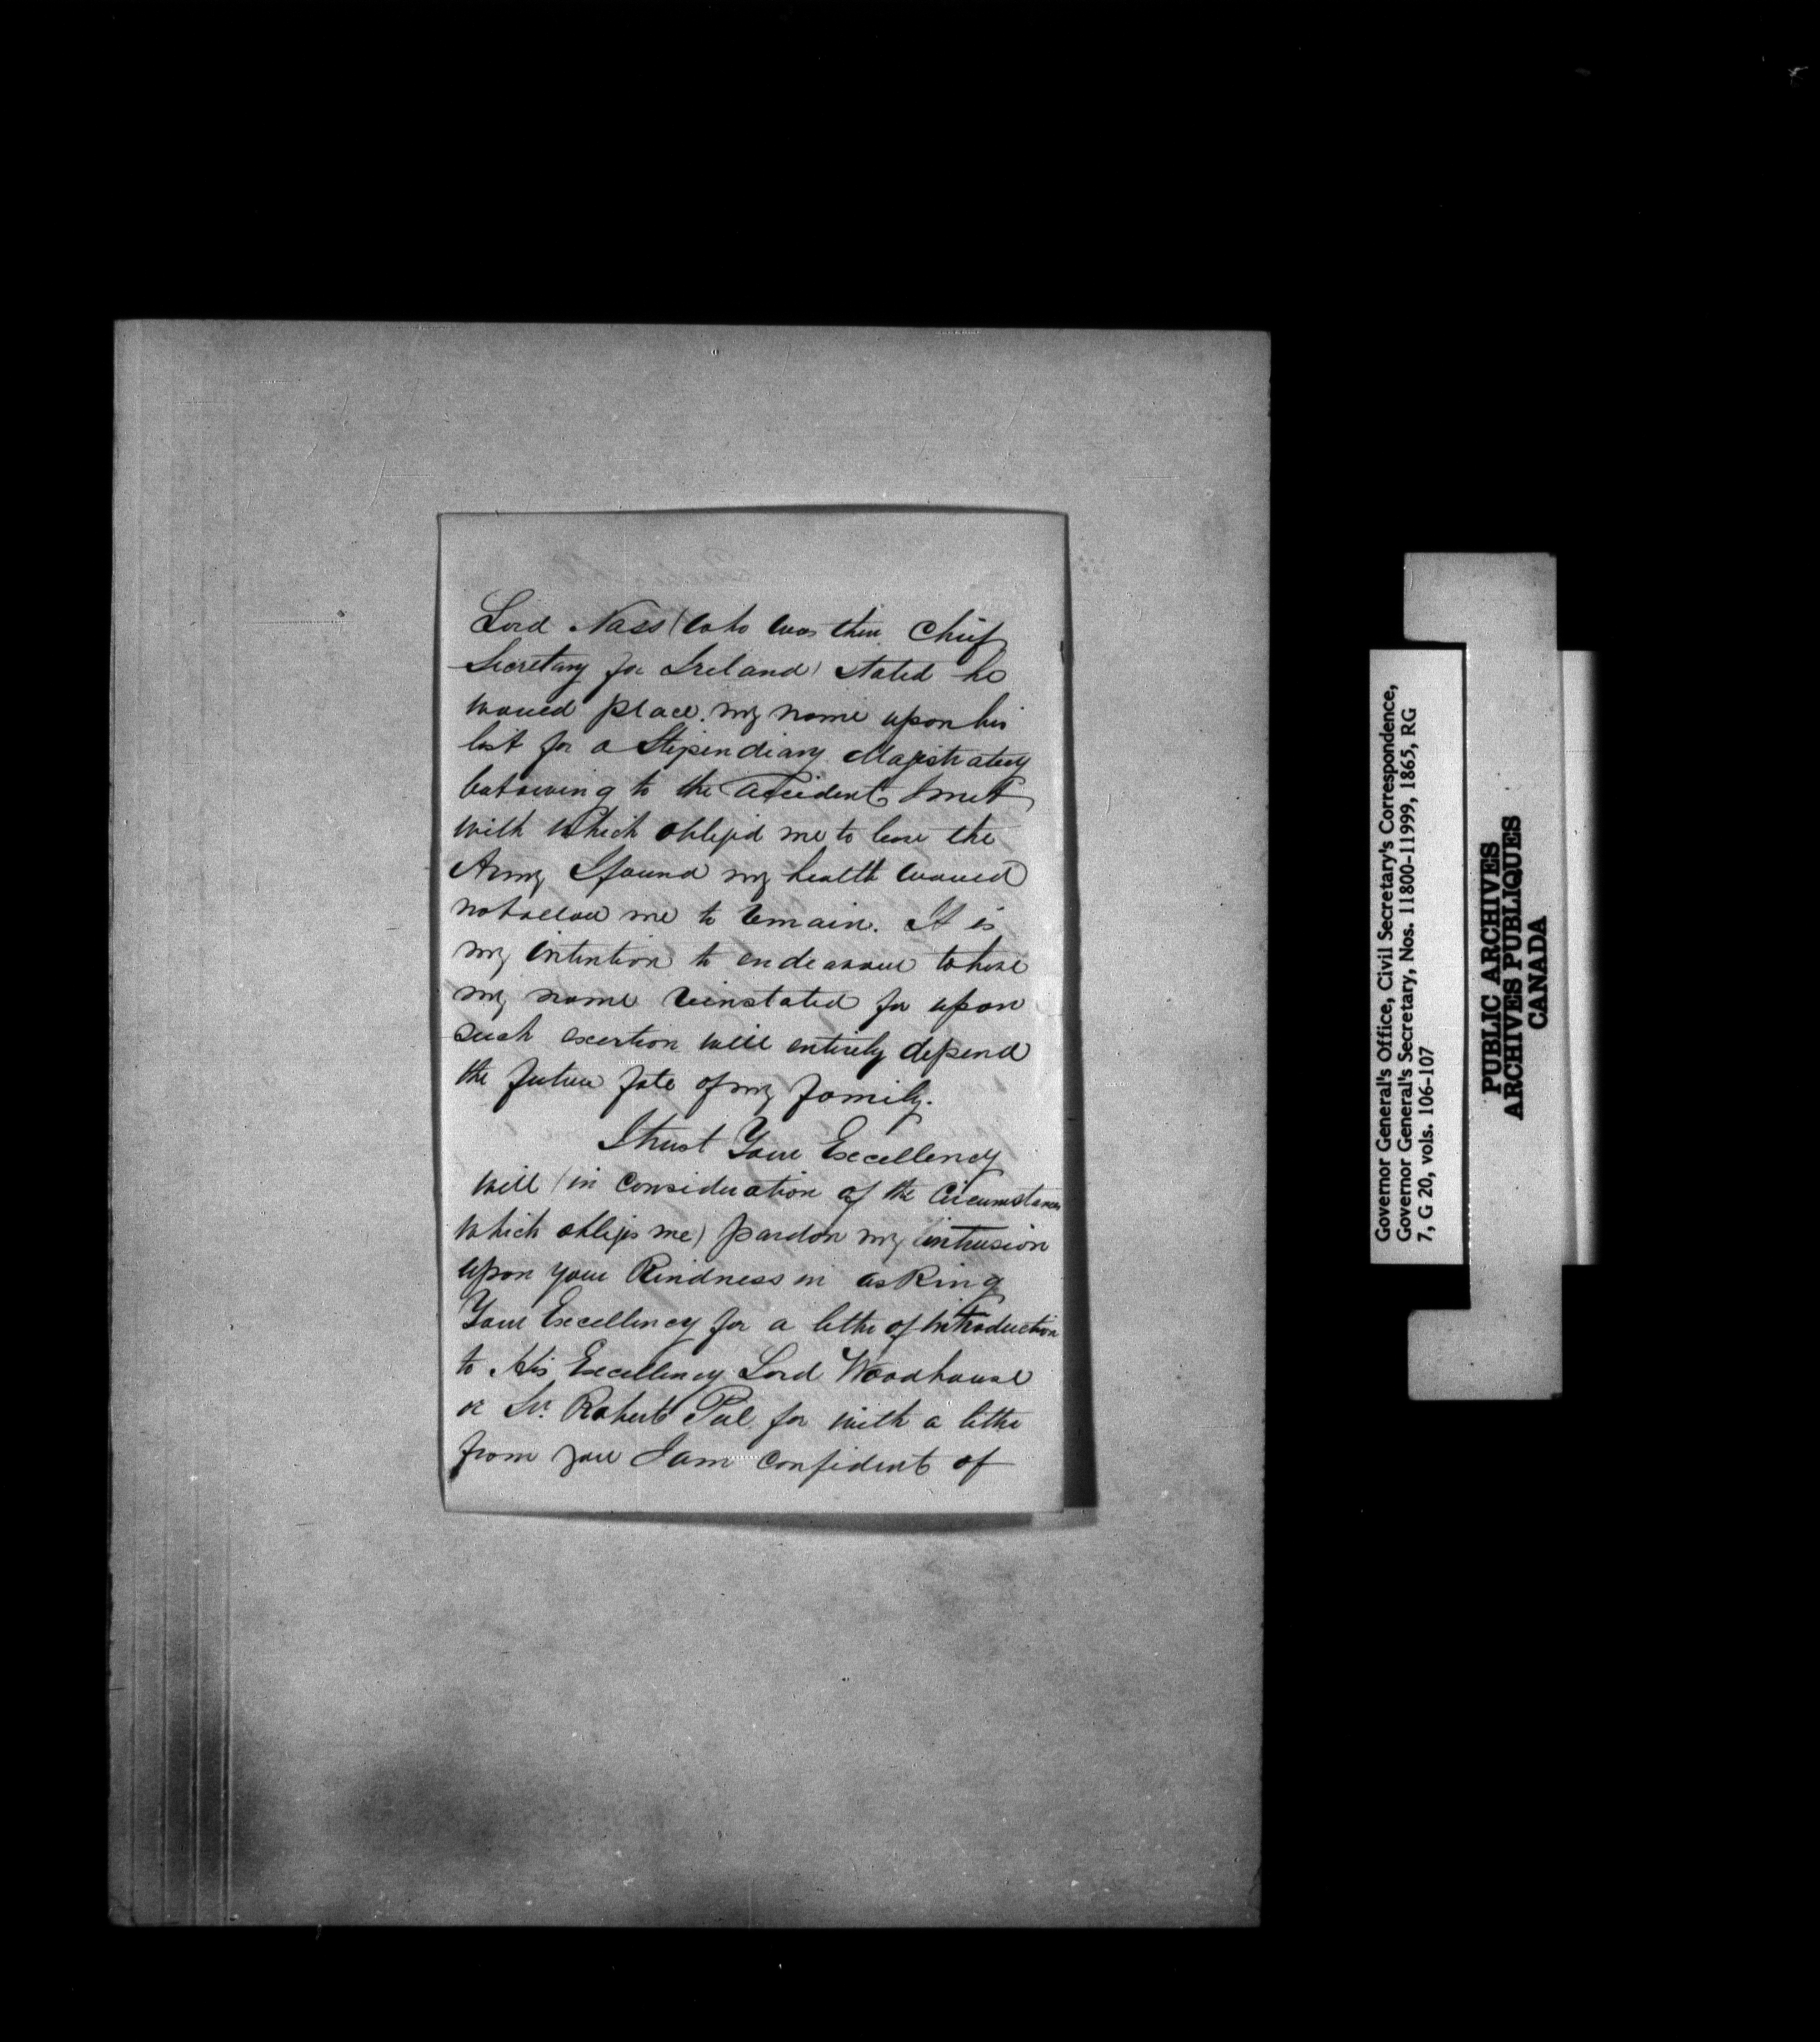 Lord Nass (who was then Chief
Secretary for Ireland) stated he
would place my name upon his
list for a Stipendiary Magistracy
but owing to the accident I met
with which obliged me to leave the
Army I found my health would
not allow me to remain. It is
my intention to endeavour to have
my name reinstated for upon
such exertion will entirely depend
the future fate of my family.
I trust Your Excellency
will (in consideration of the Circumstances
which obliges me) pardon my intrusion
upon your Kindness in asking
Your Excellency for a letter of introduction
to His Excellency Lord Woodhouse
or Sir Robert Peel for with a letter
from you I am confident of
Governor General's Office, Civil Secretary's Correspondence,
Governor General's Secretary, Nos. 11800-11999, 1865, RG
7, G 20, vols. 106-107
PUBLIC ARCHIVES
ARCHIVES PUBLIQUES
CANADA